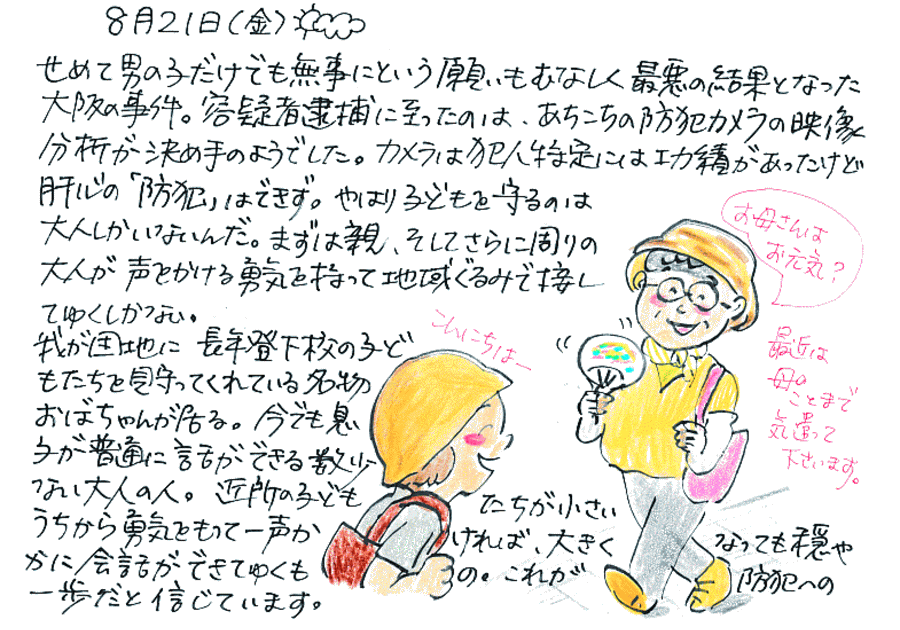 8月21日(金)
せめて男の子だけでも無事にという願いもむなしく最悪の結果となった
大阪の事件。容疑者逮捕に至ったのは、あちこちの防犯カメラの映像
分析が決め手のようでした。カメラは犯人特定には功績があったけど
肝心の「防犯」はできず。やはり子どもを守るのは
大人しかいないんだ。まずは親、そしてさらに周りの
大人が声をかける勇気を持って地域ぐるみで接し
てゆくしかない。
我が団地に長年登下校の子ど
もたちを見守ってくれている名物
おばちゃんが居る。今でも息
子が普通に会話ができる数少
ない大人の人。近所の子ども
たちが小さい
うちから勇気をもって一声か
ければ、大きく
なっても穏や
かに会話ができてゆくも
の。これが
防犯への
一歩だと信じています。
こんにちはー
お母さんは
お元気?
最近は
母の
ことまで
気遣って
下さいます。